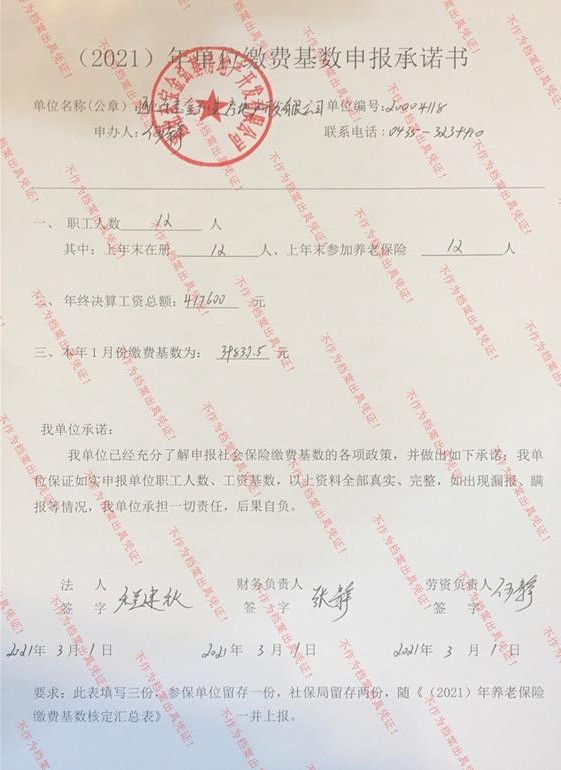 （2021）年单位缴费基数申报承诺书
单位名称(公章) 单位编号:20004118
申办人: 何静 联系电话: 0435-3234440
一、 职工人数 12 人
其中: 上年末在册 12 人、上年末参加养老保险 12 人
二、年终决算工资总额: 417600 元
三、本年1月份缴费基数为: 元
我单位承诺:
我单位已经充分了解申报社会保险缴费基数的各项政策，并做出如下承诺: 我单
位保证如实申报单位职工人数、工资基数，以上资料全部真实、完整，如出现漏报、瞒
报等情况，我单位承担一切责任，后果自负。
法 人 财务负责人 劳资负责人
签 字 程建秋 签 字 张静 签 字 何静
2021年 3 月 1 日 2021年 3 月 1 日 2021年 3 月 1 日
要求: 此表填写三份，参保单位留存一份，社保局留存两份，随《（2021）年养老保险
缴费基数核定汇总表》 一并上报。
不作为档案出具凭证!